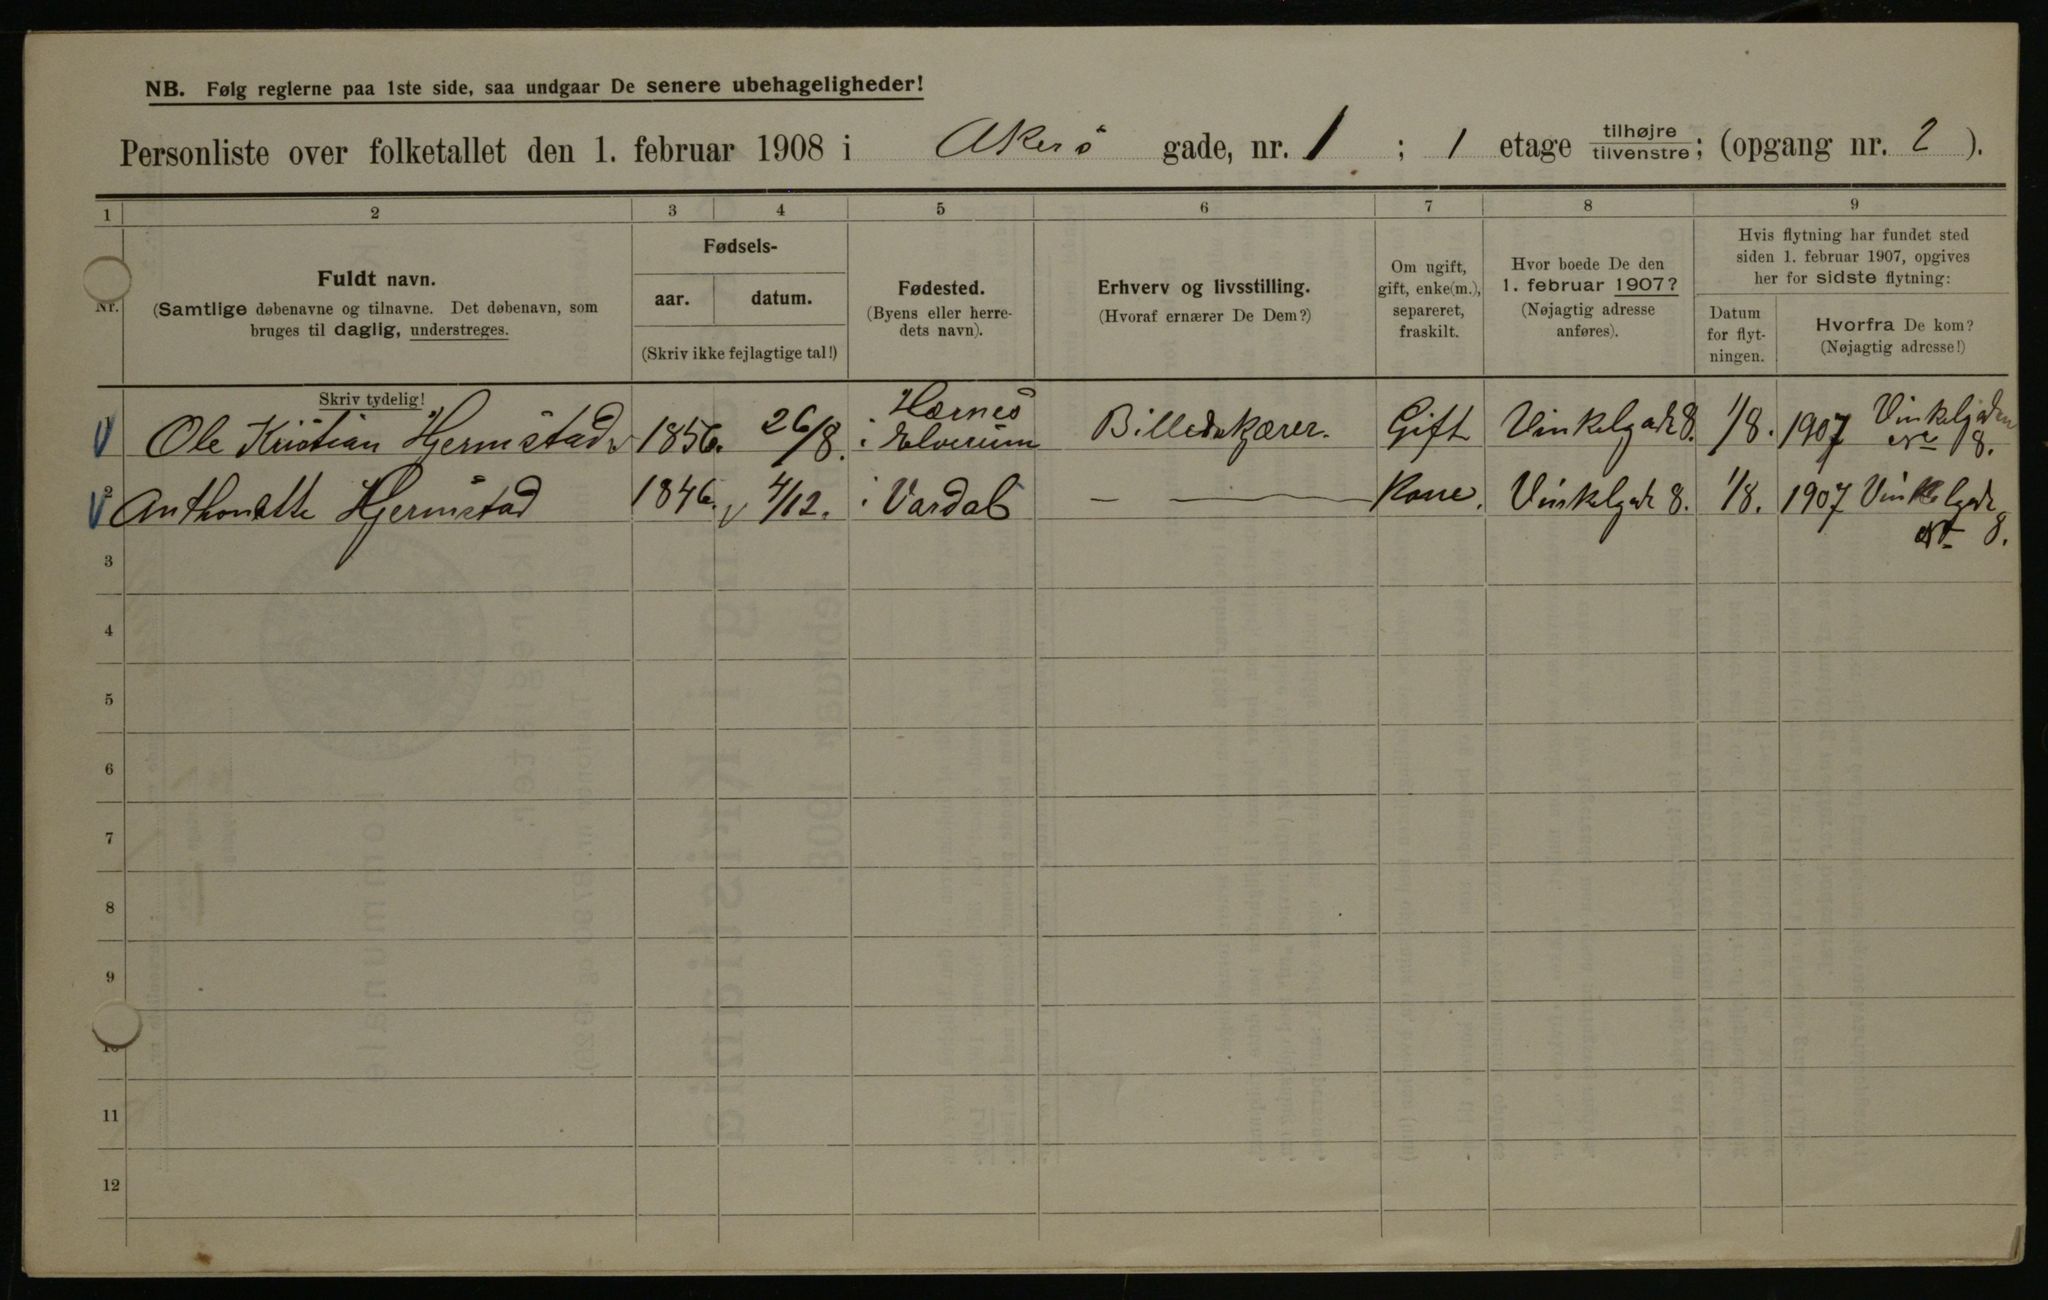 NB. Følg reglerne paa 1ste side, saa undgaar De senere ubehageligheder!
Personliste over folketallet den 1. februar 1908 i Akers gade, nr. 1 ; 1 etage tilhøjre tilvenstre; (opgang nr. 2 ).
1 2 3 4 5 6 7 8 9
Nr.
Fuldt navn.
(Samtlige døbenavne og tilnavne. Det døbenavn, som
bruges til daglig, understreges.
Skriv tydelig!
Fødsels-
aar. datum.
(Skriv ikke fejlagtige tal!)
Fødested.
(Byens eller herre-
dets navn).
Erhverv og livsstilling.
(Hvoraf ernærer De Dem?)
Om ugift,
gift, enke(m.),
separeret,
fraskilt.
Hvor boede De den
1. februar 1907?
(Nøjagtig adresse
anføres).
Hvis flytning har fundet sted
siden 1. februar 1907, opgives
her for sidste flytning:
Datum
for flyt-
ningen.
Hvorfra De kom?
(Nøjagtig adresse!)
Ole Kristian Hjermstad 1856. 26/8. Hernes i Elverum Billedskjærer. Gift Vinkelgade 8. 1/8. 1907 Vinkelgaden 8.
2 Anthonette Hjermstad 1846. 4/12. i Vardal — Kone. Vinkelgade 8. 1/8. 1907 Vinkelgade 8.
3
4
5
6
7
8
9
10
11
12